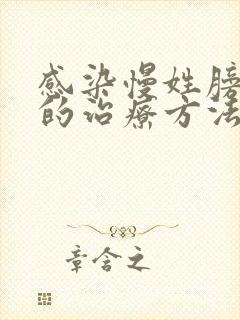 感染慢姓膀
的治疗方法
章含之